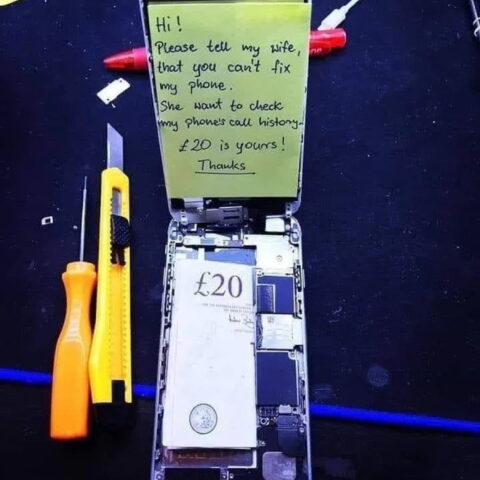 Hi!
Please tell my wife,
that you can't fix
my phone.
She want to check
my phone's call history.
£20 is yours!
Thanks
£20